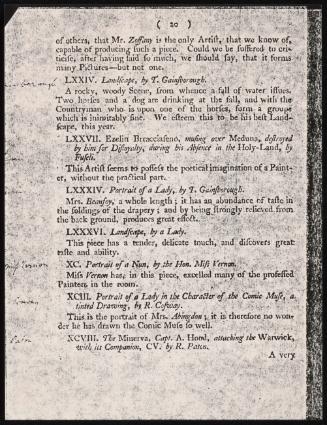 ( 20 )
of others, that Mr. Zoffany is the only Artist, that we know of,
capable of producing such a piece. Could we be suffered to cri-
ticise, after having said so much, we should say, that it forms
many Pictures—but not one.
LXXIV. Landscape, by T. Gainsborough.
A rocky, woody Scene, from whence a fall of water issues.
Two horses and a dog are drinking at the fall, and with the
Countryman who is upon one of the horses, form a groupe
which is inimitably fine. We esteem this to be his best Land-
scape, this year.
LXXVII. Ezelin Bracciaseno, musing over Meduna, destroyed
by him for Disloyalty, during his Absence in the Holy-Land, by
Fuseli.
This Artist seems to possess the poetical imagination of a Paint-
er, without the practical part.
LXXXIV. Portrait of a Lady, by T. Gainsborough.
Mrs. Beaufoy, a whole length; it has an abundance of taste in
the foldings of the drapery; and by being strongly relieved from
the back ground, produces great effect.
LXXXVI. Landscape, by a Lady.
This piece has a tender, delicate touch, and discovers great
taste and ability.
Miss Vernon
XC. Portrait of a Nun, by the Hon. Miss Vernon.
Miss Vernon has, in this piece, excelled many of the professed
Painters in the room.
XCIII. Portrait of a Lady in the Character of the Comic Muse, a
tinted Drawing, by R. Cosway.
This is the portrait of Mrs. Abingdon; it is therefore no won-
der he has drawn the Comic Muse so well.
Paton
XCVIII. The Minerva, Capt. A. Hood, attacking the Warwick,
with its Companion, CV. by R. Paton.
A very